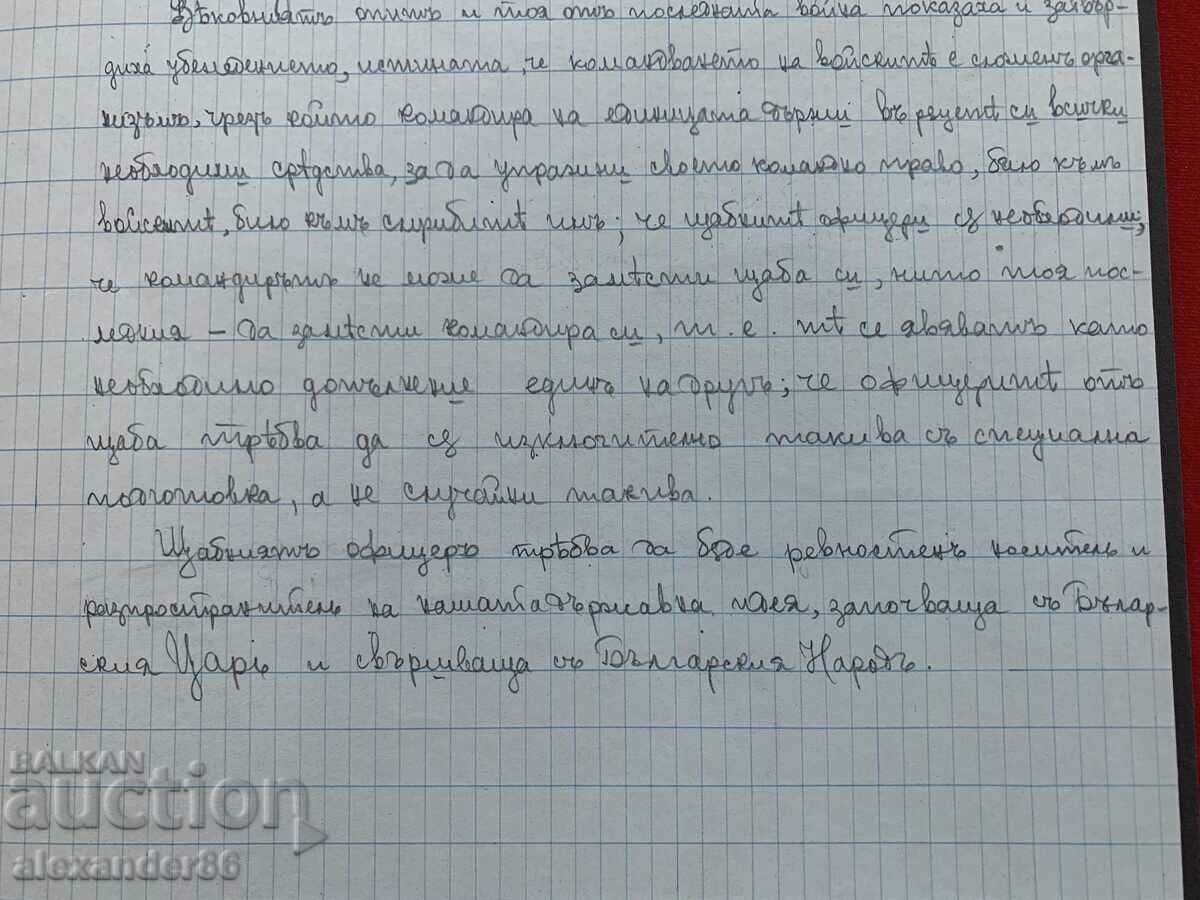 Вѣковниятъ опитъ и тоя отъ последната война показаха и затвър-
диха убеждението, истината, че командването на войскитѣ е сложенъ орга-
низъмъ, чрезъ който командира на единицата държи въ рѫцетѣ си всички
необходими срѣдства, за да упражни своето командно право, било къмъ
войскитѣ, било къмъ службитѣ имъ; че щабнитѣ офицери сѫ необходими,
че командирътъ не може да замѣсти щаба си, нито тоя пос-
ледния – да замѣсти командира си, т. е. тѣ се явяватъ като
необходимо допълнение единъ на другъ; че офицеритѣ отъ
щаба трѣбва да сѫ изключително такива съ специална
подготовка, а не случайни такива.
Щабниятъ офицеръ трѣбва да бѫде ревностенъ носитель и
разпространитель на нашата държавна идея, започваща съ Българ-
ския Царь и свършваща съ Българския Народъ.
BALKAN
auction
alexander86